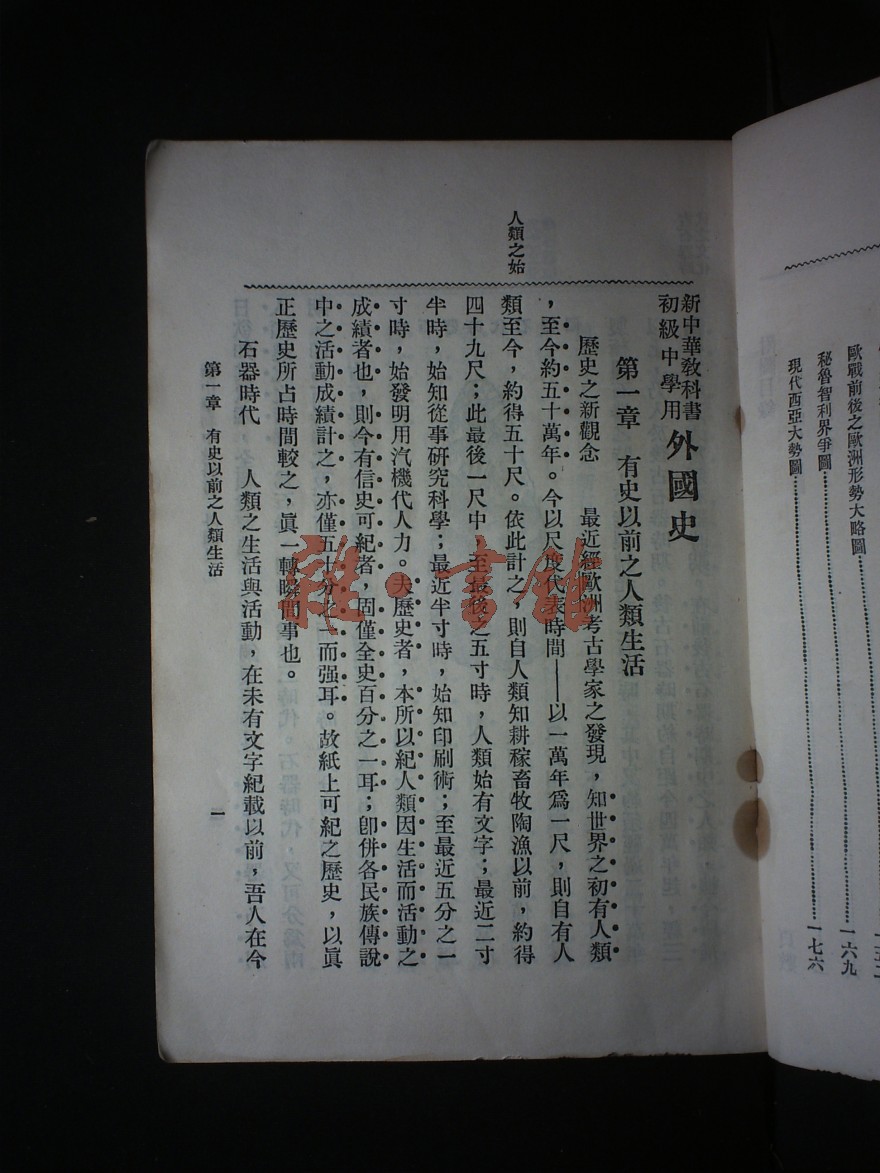 現代西亞大勢圖⋯⋯一七六
秘魯智利界爭圖⋯⋯一六九
歐戰前後之歐洲形勢大略圖
新中華教科書
初級中學用
外國史
第一章　有史以前之人類生活
人類之始
歷史之新觀念　最近經歐洲考古學家之發現，知世界之初有人類
，至今約五十萬年。今以尺度代表時間——以一萬年爲一尺，則自有人
類至今，約得五十尺。依此計之，則自人類知耕稼畜牧陶漁以前，約得
四十九尺；此最後一尺中　至最後之五寸時，人類始有文字；最近二寸
半時，始知從事研究科學；最近半寸時，始知印刷術；至最近五分之一
寸時，始發明用汽機代人力。夫歷史者，本所以紀人類因生活而活動之
成績者也，則今有信史可紀者，固僅全史百分之一耳；卽併各民族傳說
中之活動成績計之，亦僅五十分之一而强耳。故紙上可紀之歷史，以眞
正歷史所占時間較之，眞一轉瞬間事也。
石器時代　人類之生活與活動，在未有文字紀載以前，吾人在今
第一章　有史以前之人類生活
一
雜·書館